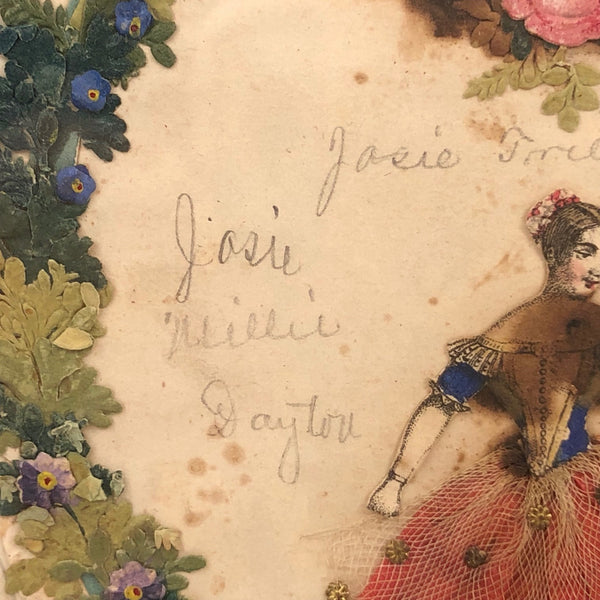 Josie
Josie
Millie
Dayton